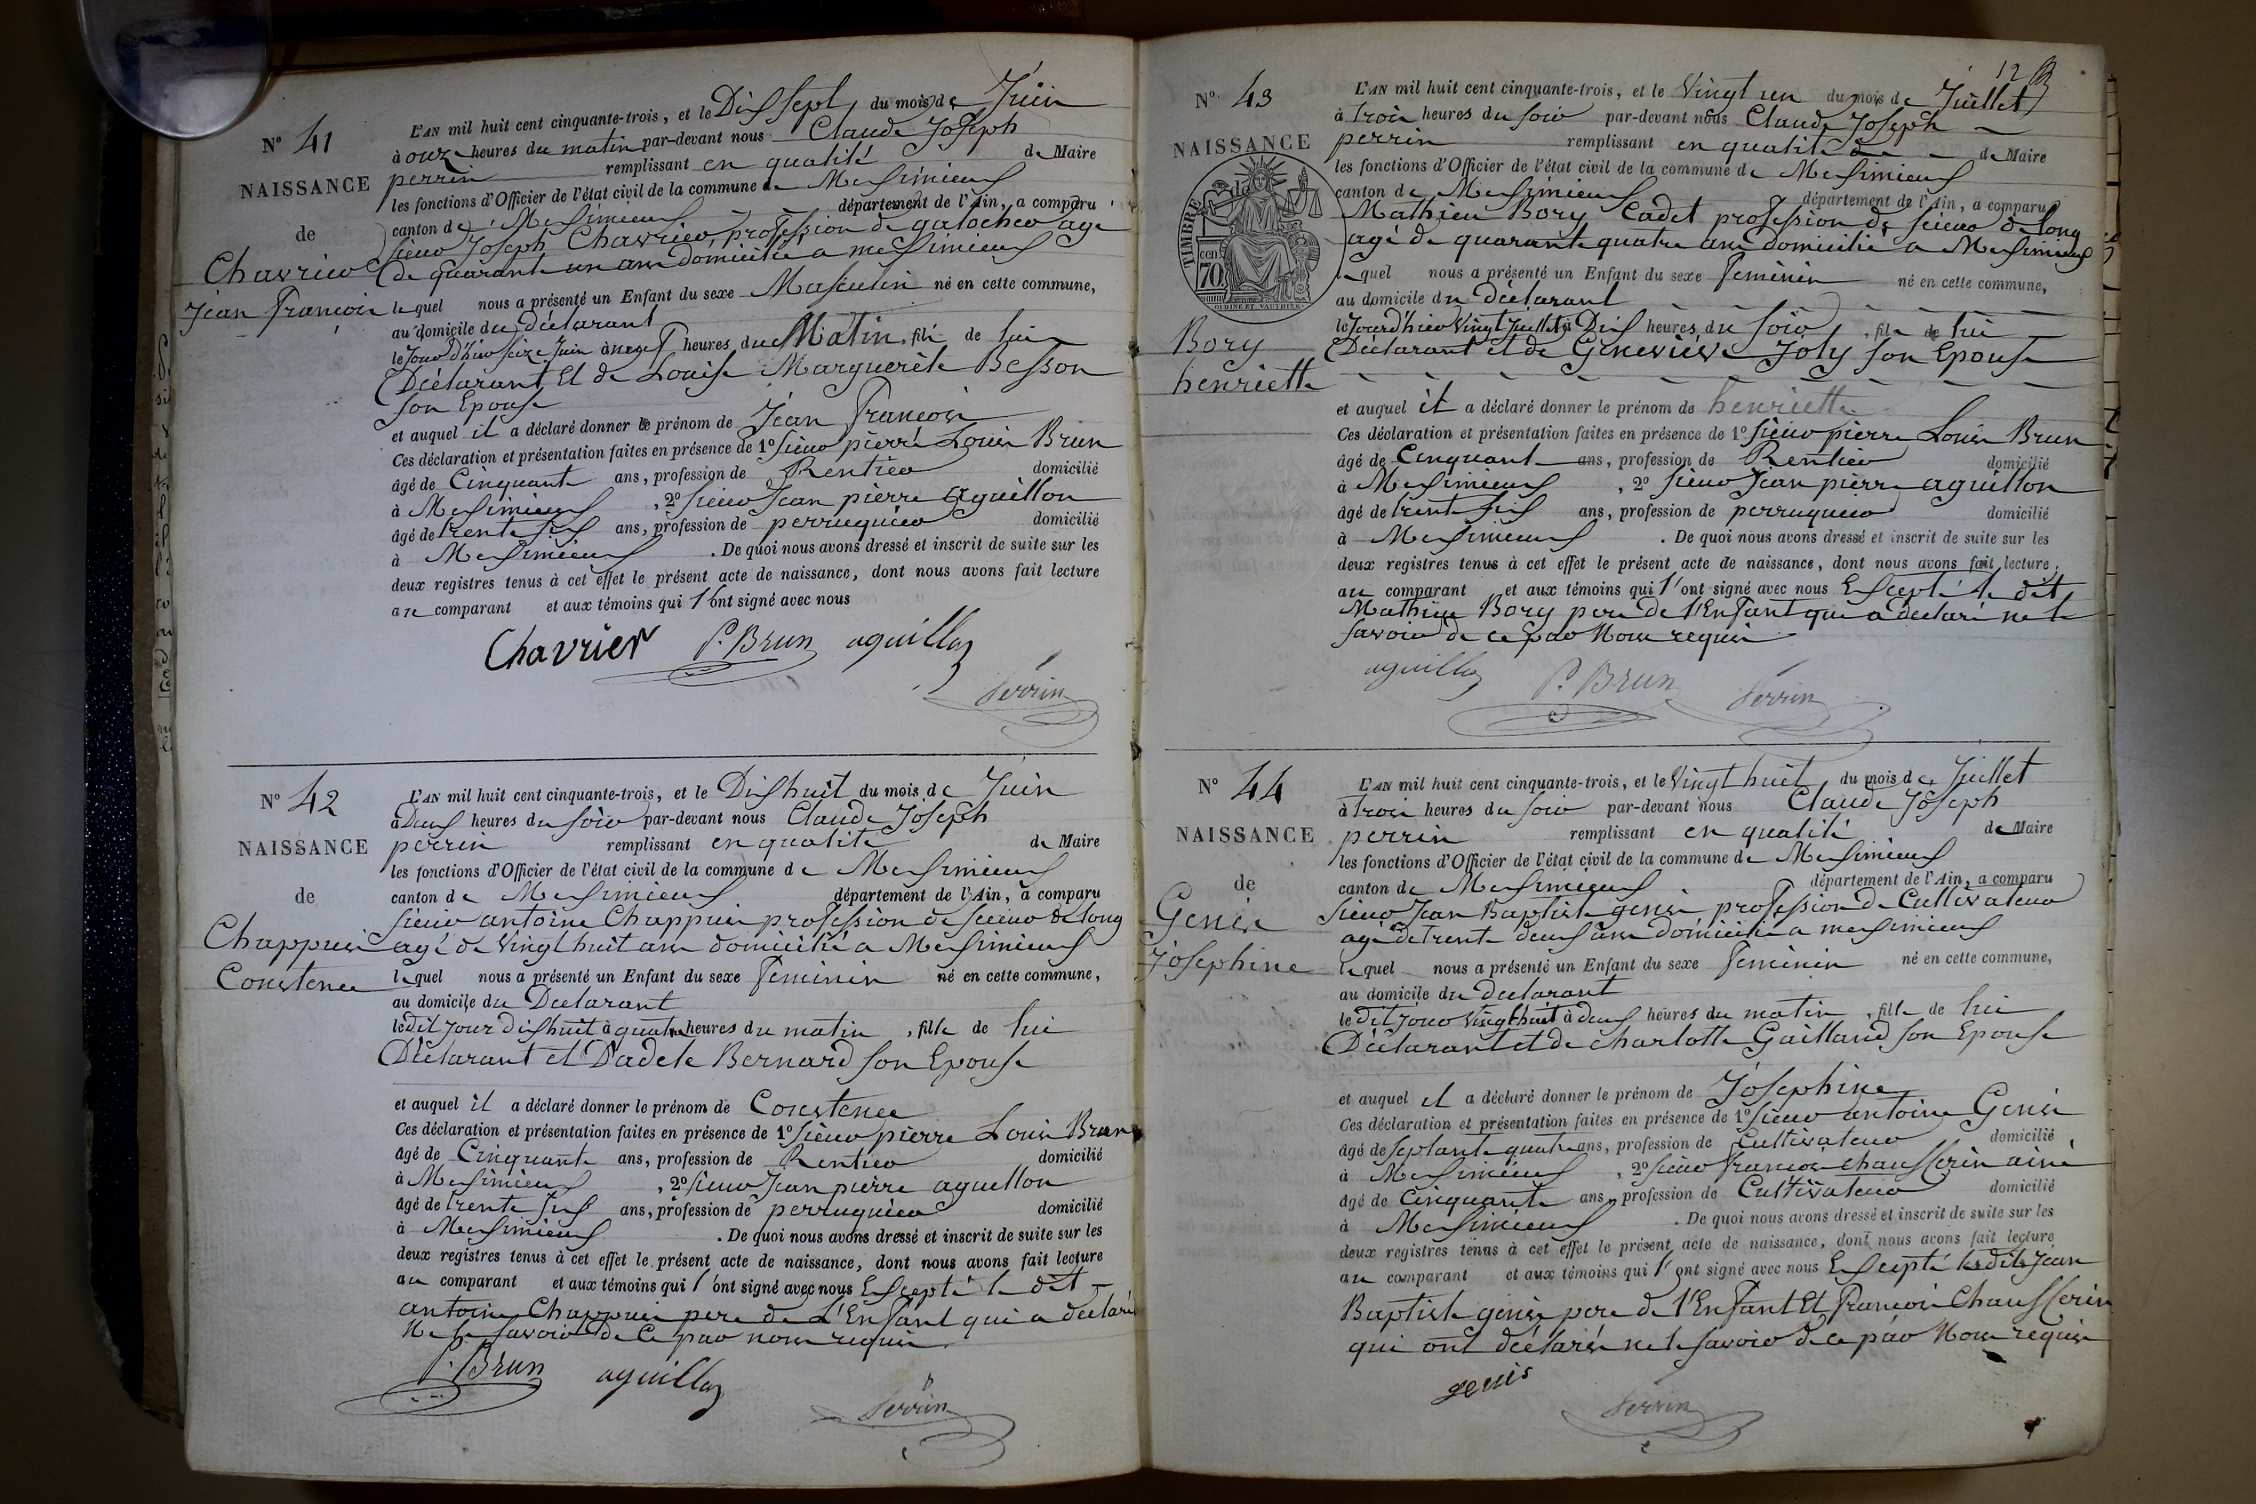 N° 41
NAISSANCE
de
Chavrier
Jean François
L'AN mil huit cent cinquante-trois, et le Dix Sept du mois de Juin
à onze heures du matin par-devant nous Claude Joseph
perrin remplissant en qualité de Maire
les fonctions d'Officier de l'état civil de la commune de Meximieux
canton de Meximieux département de l'Ain, a comparu
Sieur Joseph Chavrier, profession de galocher agé
de quarante un ans domicilié a meximieux
lequel nous a présenté un Enfant du sexe Masculin né en cette commune,
au domicile du Déclarant
le Jour d'hier Seize Juin à neuf heures du Matin, fils de lui
Déclarant Et de Louise Marguerite Besson
son Epouse
et auquel il a déclaré donner le prénom de Jean François
Ces déclaration et présentation faites en présence de 1° Sieur pierre Louis Brun
âgé de Cinquante ans, profession de Rentier domicilié
à Meximieux, 2° Sieur Jean pierre aguillon
âgé de trente six ans, profession de perruquier domicilié
à Meximieux. De quoi nous avons dressé et inscrit de suite sur les
deux registres tenus à cet effet le présent acte de naissance, dont nous avons fait lecture
au comparant et aux témoins qui l'ont signé avec nous
Chavrier P. Brun aguillon
Perrin
N° 42
NAISSANCE
de
Chappuis
Constence
L'AN mil huit cent cinquante-trois, et le Dix huit du mois de Juin
à Deux heures du soir par-devant nous Claude Joseph
perrin remplissant en qualité de Maire
les fonctions d'Officier de l'état civil de la commune de Meximieux
canton de Meximieux département de l'Ain, a comparu
Sieur antoine Chappuis profession de scieur de long
agé de vingt huit ans domicilié a Meximieux
lequel nous a présenté un Enfant du sexe feminin né en cette commune,
au domicile du Declarant
le dit jour dix huit à quatre heures du matin, fille de lui
Déclarant et D'adele Bernard son Epouse
et auquel il a déclaré donner le prénom de Constence
Ces déclaration et présentation faites en présence de 1° Sieur pierre Louis Brun
âgé de Cinquante ans, profession de Rentier domicilié
à Meximieux, 2° Sieur Jean pierre aguillon
âgé de trente six ans, profession de perruquier domicilié
à Meximieux. De quoi nous avons dressé et inscrit de suite sur les
deux registres tenus à cet effet le présent acte de naissance, dont nous avons fait lecture
au comparant et aux témoins qui l'ont signé avec nous Excepté le dit
antoine Chappuis pere de L'Enfant qui a déclaré
Ne le savoir de ce par nous requis
P. Brun aguillon
Perrin
12
N° 43
NAISSANCE
de
TIMBRE
70 cen
OUDINE ET VAUTHIER
Bory
henriette
L'AN mil huit cent cinquante-trois, et le Vingt un du mois de Juillet
à trois heures du soir par-devant nous Claude Joseph
perrin remplissant en qualité de Maire
les fonctions d'Officier de l'état civil de la commune de Meximieux
canton de Meximieux département de l'Ain, a comparu
Mathieu Bory Cadet profession de scieur de long
agé de quarante quatre ans domicilié a Meximieux
lequel nous a présenté un Enfant du sexe feminin né en cette commune,
au domicile du Déclarant
le Jourd'hier vingt Juillet à Dix heures du soir, fille de lui
Déclarant et de Geneviève Joly son Epouse
et auquel il a déclaré donner le prénom de henriette
Ces déclaration et présentation faites en présence de 1° Sieur pierre Louis Brun
âgé de Cinquante ans, profession de Rentier domicilié
à Meximieux, 2° Sieur Jean pierre aguillon
âgé de trente six ans, profession de perruquier domicilié
à Meximieux. De quoi nous avons dressé et inscrit de suite sur les
deux registres tenus à cet effet le présent acte de naissance, dont nous avons fait lecture
au comparant et aux témoins qui l'ont signé avec nous Excepté le dit
Mathieu Bory pere de l'Enfant qui a déclaré ne le
savoir de ce par Nous requis
aguillon P. Brun Perrin
N° 44
NAISSANCE
de
Genis
Josephine
L'AN mil huit cent cinquante-trois, et le Vingt huit du mois de Juillet
à trois heures du soir par-devant nous Claude Joseph
perrin remplissant en qualité de Maire
les fonctions d'Officier de l'état civil de la commune de Meximieux
canton de Meximieux département de l'Ain, a comparu
Sieur Jean Baptiste genis profession de Cultivateur
agé de trente deux ans domicilié a meximieux
lequel nous a présenté un Enfant du sexe feminin né en cette commune,
au domicile du declarant
le dit jour vingt huit à deux heures du matin, fille de lui
Déclarant et de charlotte Gailland son Epouse
et auquel il a déclaré donner le prénom de Josephine
Ces déclaration et présentation faites en présence de 1° Sieur antoine Genis
âgé de septante quatre ans, profession de Cultivateur domicilié
à Meximieux, 2° Sieur françois chausserin ainé
âgé de Cinquante ans, profession de Cultivateur domicilié
à Meximieux. De quoi nous avons dressé et inscrit de suite sur les
deux registres tenus à cet effet le présent acte de naissance, dont nous avons fait lecture
au comparant et aux témoins qui l'ont signé avec nous Excepté les dits Jean
Baptiste genis pere de l'Enfant Et françois Chausserin
qui ont déclarés ne le savoir de ce par Nous requis
genis
Perrin